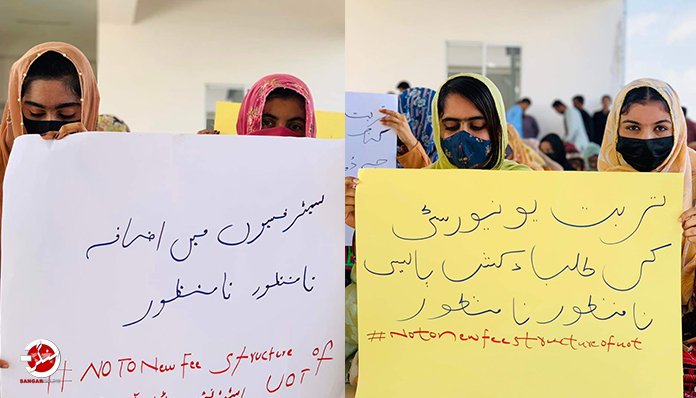 سمیسٹر فیسوں میں اضافہ
نامنظور نامنظور
# NO TO New Fee Structure of
UOT
تربت یونیورسٹی
کی طلباء دشمن پالیسی
نامنظور نامنظور
#Notonewfeestructureofuot
تربت
SANGAR